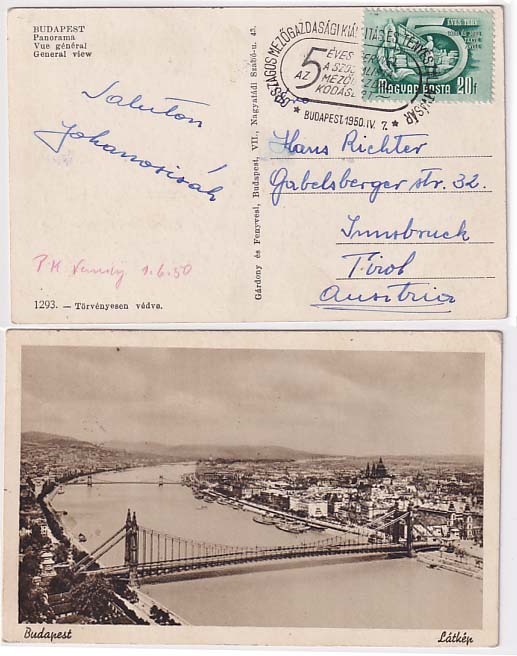 BUDAPEST
Panorama
Vue général
General view
ORSZÁGOS MEZŐGAZDASÁGI KIÁLLÍTÁS ÉS TENYÉSZÁLLATVÁSÁR
AZ 5 ÉVES
A SZOC
MEZŐ
KODÁS
* BUDAPEST 1950.IV. 7. *
ÖTÉVES TERV
MAGYAR POSTA 20f
Saluton
Hans Richter
Gabelsberger str. 32.
Innsbruck
Tirol
Austria
1.6.50
1293. — Törvényesen védve.
Gárdony és Fenyvesi, Budapest, VII., Nagyatádi Szabó-u. 43.
Budapest
Látkép